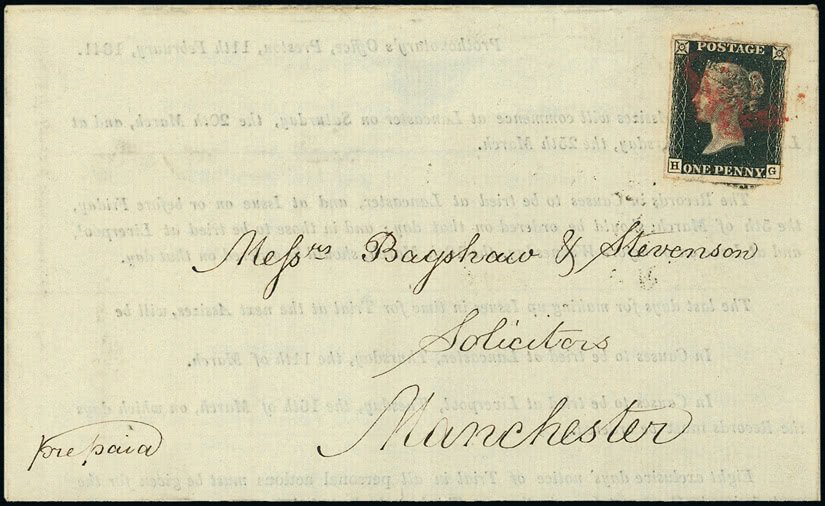 Prothonotary's Office, Preston, 11th February, 1841.
POSTAGE
H G
ONE PENNY
Assizes will commence at Lancaster on Saturday, the 20th March, and at
the 25th March.
The Records in Causes to be tried at Lancaster, and at Issue on or before Friday,
the 5th of March, should be ordered on that day; and in those to be tried at Liverpool,
and at on that day.
Messrs Bagshaw & Stevenson
The last days for making up Issues in time for Trial at the next Assizes, will be
Solicitors
In Causes to be tried at Lancaster, Thursday, the 11th of March.
In Causes to be tried at Liverpool, Tuesday, the 16th of March, on which days
the Records must
Manchester
prepaid
Eight exclusive days' notice of Trial in all personal actions must be given for the